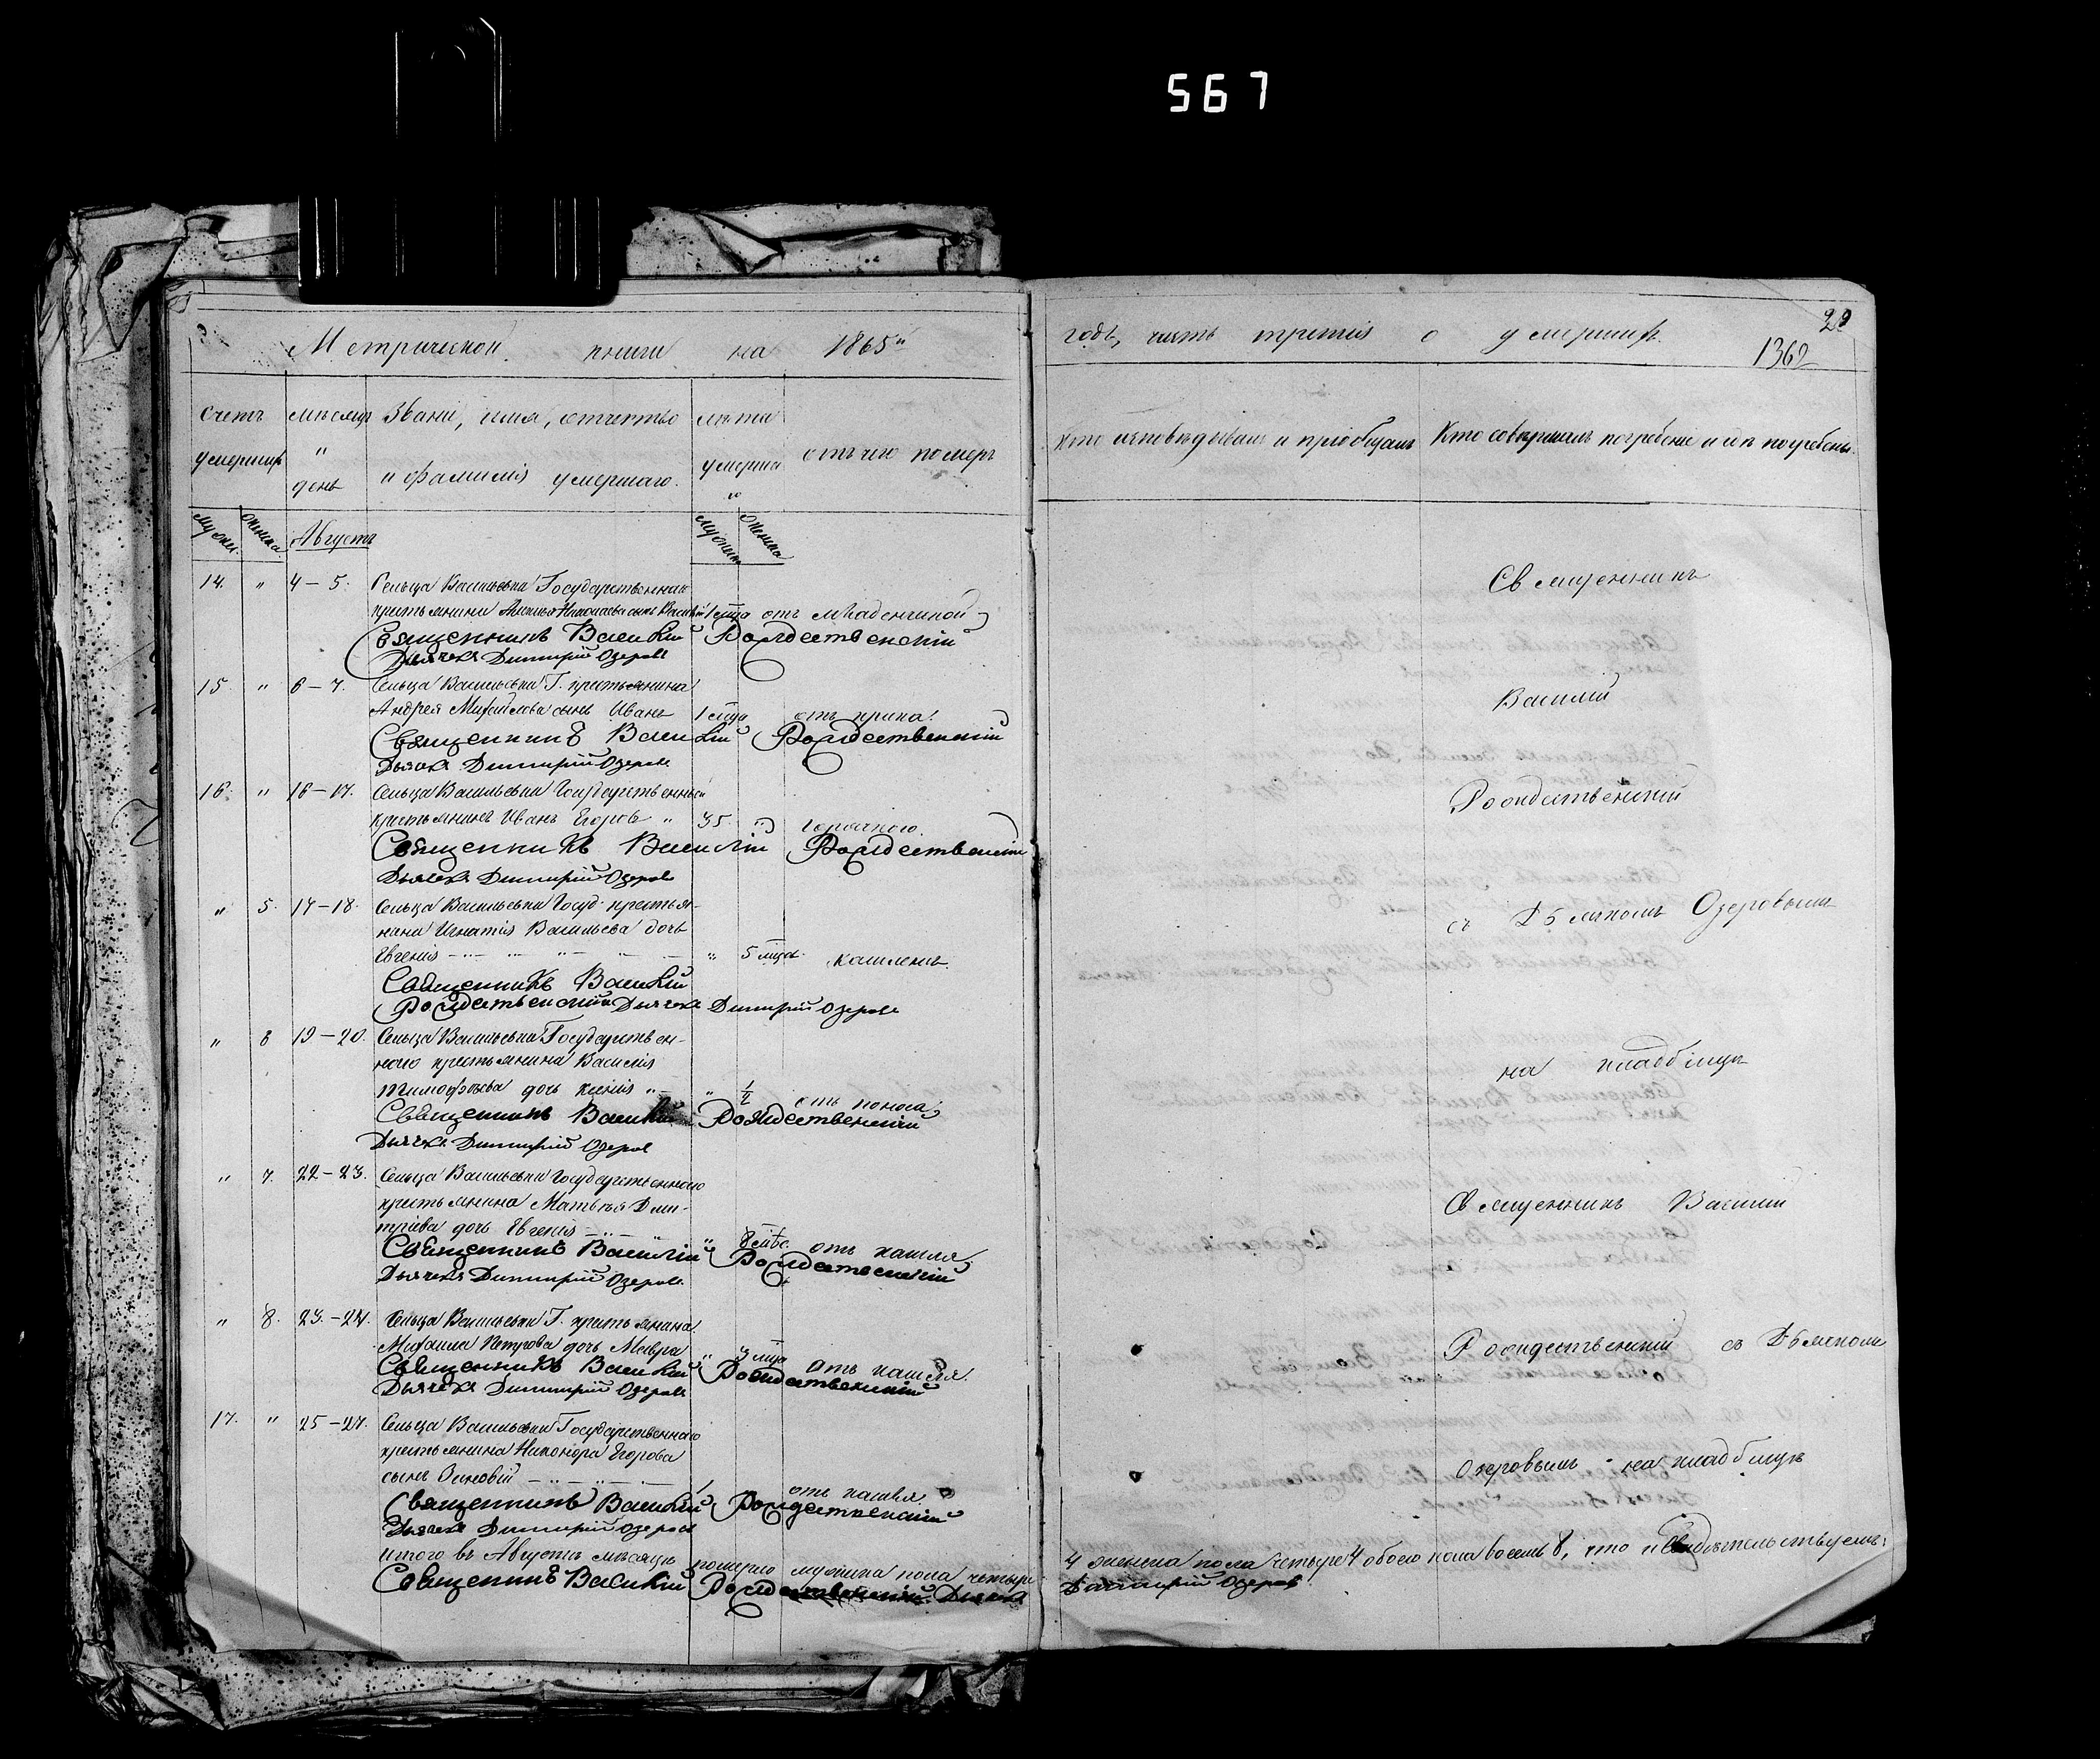 567
Метрической книги на 1865й
годъ, часть третія о умершихъ.
29
1362
Счетъ умершихъ
мѣсяцъ и день
Званіе, имя, отчество
и фамилія умершаго.
лѣта умершаго
отъ чего померъ
Кто исповѣдывалъ и пріобщалъ
Кто совершалъ погребеніе и гдѣ погребены.
Мужск. Женска Августъ Мужска Женска
14. " 4-5. Сельца Васильевки Государственнаго
крестьянина Николаева сынъ Василій 1 мца отъ младенческой
Священникъ Василій Рождественскій
Дьячекъ Димитрій Озеровъ
15. " 6-7. Сельца Васильевки Г. крестьянина
Андрея Михайлова сынъ Иванъ 1 мца отъ крика.
Священникъ Василій Рождественскій
Дьячекъ Димитрій Озеровъ
16. " 16-17. Сельца Васильевки Государственный
крестьянинъ Иванъ Егоровъ " 35. " горячкою.
Священникъ Василій Рождественскій
Дьячекъ Димитрій Озеровъ
" 5. 17-18. Сельца Васильевки Госуд. крестья-
нина Игнатія Васильева дочь
Евгенія " 5 мцовъ. кашлемъ.
Священникъ Василій
Рождественскій Дьячекъ Димитрій Озеровъ
" 6 19-20. Сельца Васильевки Государствен-
наго крестьянина Василія
Тимофѣева дочь Ксенія " " 1/2 отъ поноса.
Священникъ Василій Рождественскій
Дьячекъ Димитрій Озеровъ
" 7. 22-23. Сельца Васильевки Государственнаго
крестьянина Матвѣя Дми-
тріева дочь Евгенія " 8 отъ кашля
Священникъ Василій Рождественскій
Дьячекъ Димитрій Озеровъ
" 8. 23.-24. Сельца Васильевки Г. крестьянина
Михаила Петрова дочь Мавра " 3 мца отъ кашля.
Священникъ Василій Рождественскій
Дьячекъ Димитрій Озеровъ
17. " 25-27. Сельца Васильевки Государственнаго
крестьянина Никонора Егорова
сынъ Зиновій 1 отъ кашля.
Священникъ Василій Рождественскій
Дьячекъ Димитрій Озеровъ
Итого въ Августѣ мѣсяцѣ померло мужска пола четыре
4 женска пола четыре 4 обоего пола восемь 8, что и свидѣтельствуемъ:
Священникъ Василій Рождественскій Дьячекъ
Димитрій Озеровъ
Священникъ
Василій
Рождественскій
съ Дьячкомъ Озеровымъ
на кладбищѣ
Священникъ Василій
Рождественскій съ Дьячкомъ
Озеровымъ на кладбищѣ